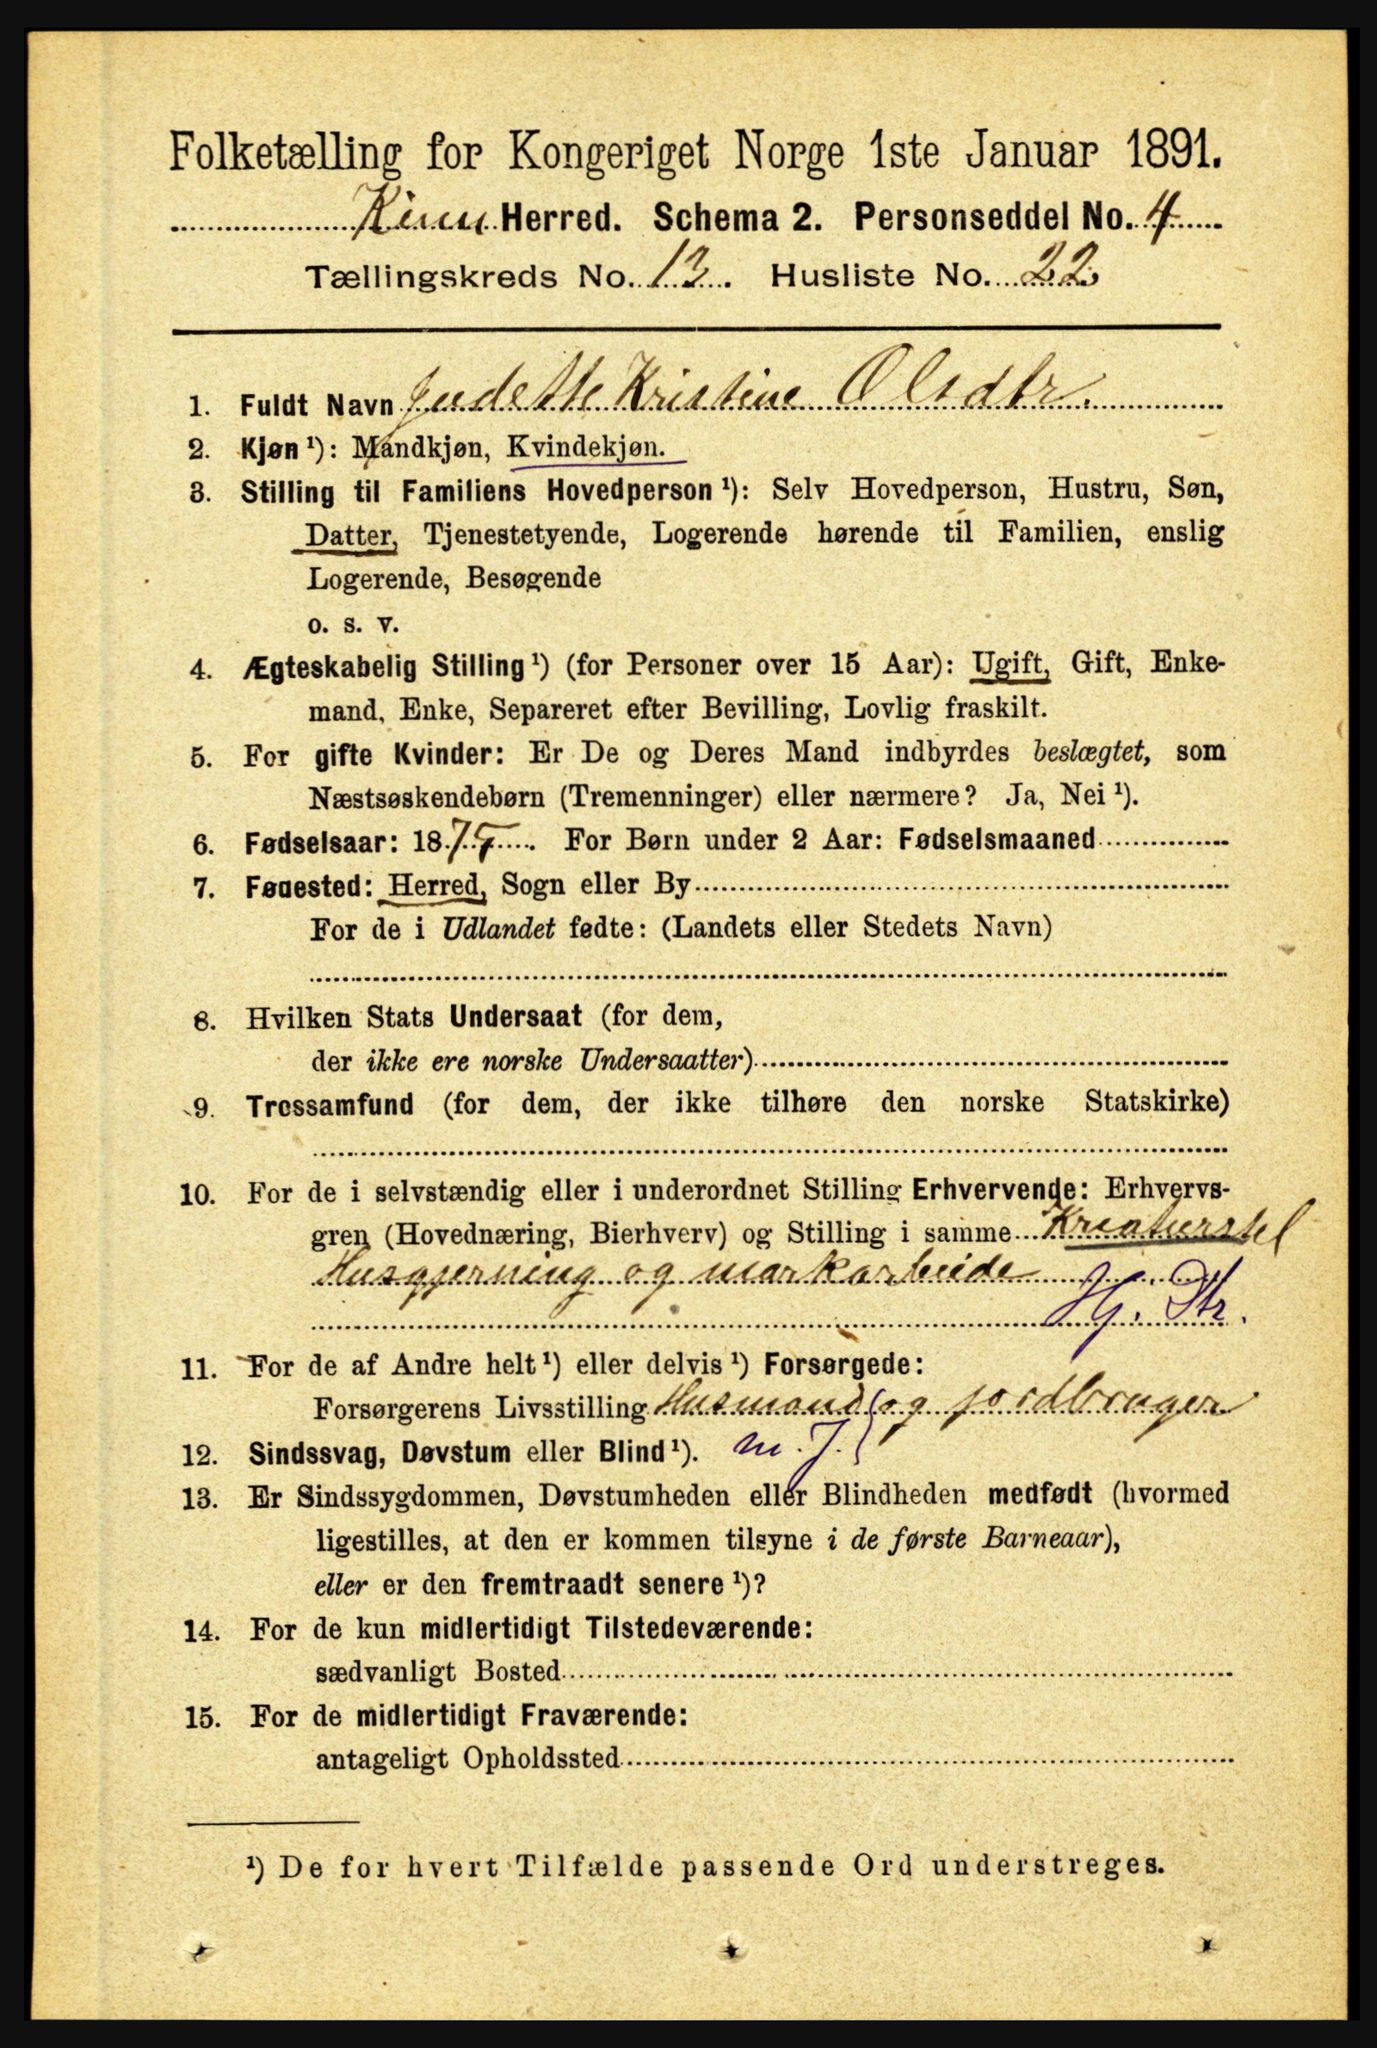 Folketælling for Kongeriget Norge 1ste Januar 1891.
Kinn Herred. Schema 2. Personseddel No. 4
Tællingskreds No. 13. Husliste No. 22
1. Fuldt Navn Judette Kristine Olsdtr.
2. Kjøn ¹): Mandkjøn, Kvindekjøn.
3. Stilling til Familiens Hovedperson ¹): Selv Hovedperson, Hustru, Søn,
Datter, Tjenestetyende, Logerende hørende til Familien, enslig
Logerende, Besøgende
o. s. v.
4. Ægteskabelig Stilling ¹) (for Personer over 15 Aar): Ugift, Gift, Enke-
mand, Enke, Separeret efter Bevilling, Lovlig fraskilt.
5. For gifte Kvinder: Er De og Deres Mand indbyrdes beslægtet, som
Næstsøskendebørn (Tremenninger) eller nærmere? Ja, Nei ¹).
6. Fødselsaar: 1875. For Børn under 2 Aar: Fødselsmaaned
7. Fødested: Herred, Sogn eller By
For de i Udlandet fødte: (Landets eller Stedets Navn)
8. Hvilken Stats Undersaat (for dem,
der ikke ere norske Undersaatter)
9. Trossamfund (for dem, der ikke tilhøre den norske Statskirke)
10. For de i selvstændig eller i underordnet Stilling Erhvervende: Erhvervs-
gren (Hovednæring, Bierhverv) og Stilling i samme Kreaturstel
Husgjerning og markarbeide
Hj. Dtr.
11. For de af Andre helt ¹) eller delvis ¹) Forsørgede:
Forsørgerens Livsstilling Husmand og jordbruger
12. Sindssvag, Døvstum eller Blind ¹). m. J.
13. Er Sindssygdommen, Døvstumheden eller Blindheden medfødt (hvormed
ligestilles, at den er kommen tilsyne i de første Barneaar),
eller er den fremtraadt senere ¹)?
14. For de kun midlertidigt Tilstedeværende:
sædvanligt Bosted
15. For de midlertidigt Fraværende:
antageligt Opholdssted
¹) De for hvert Tilfælde passende Ord understreges.